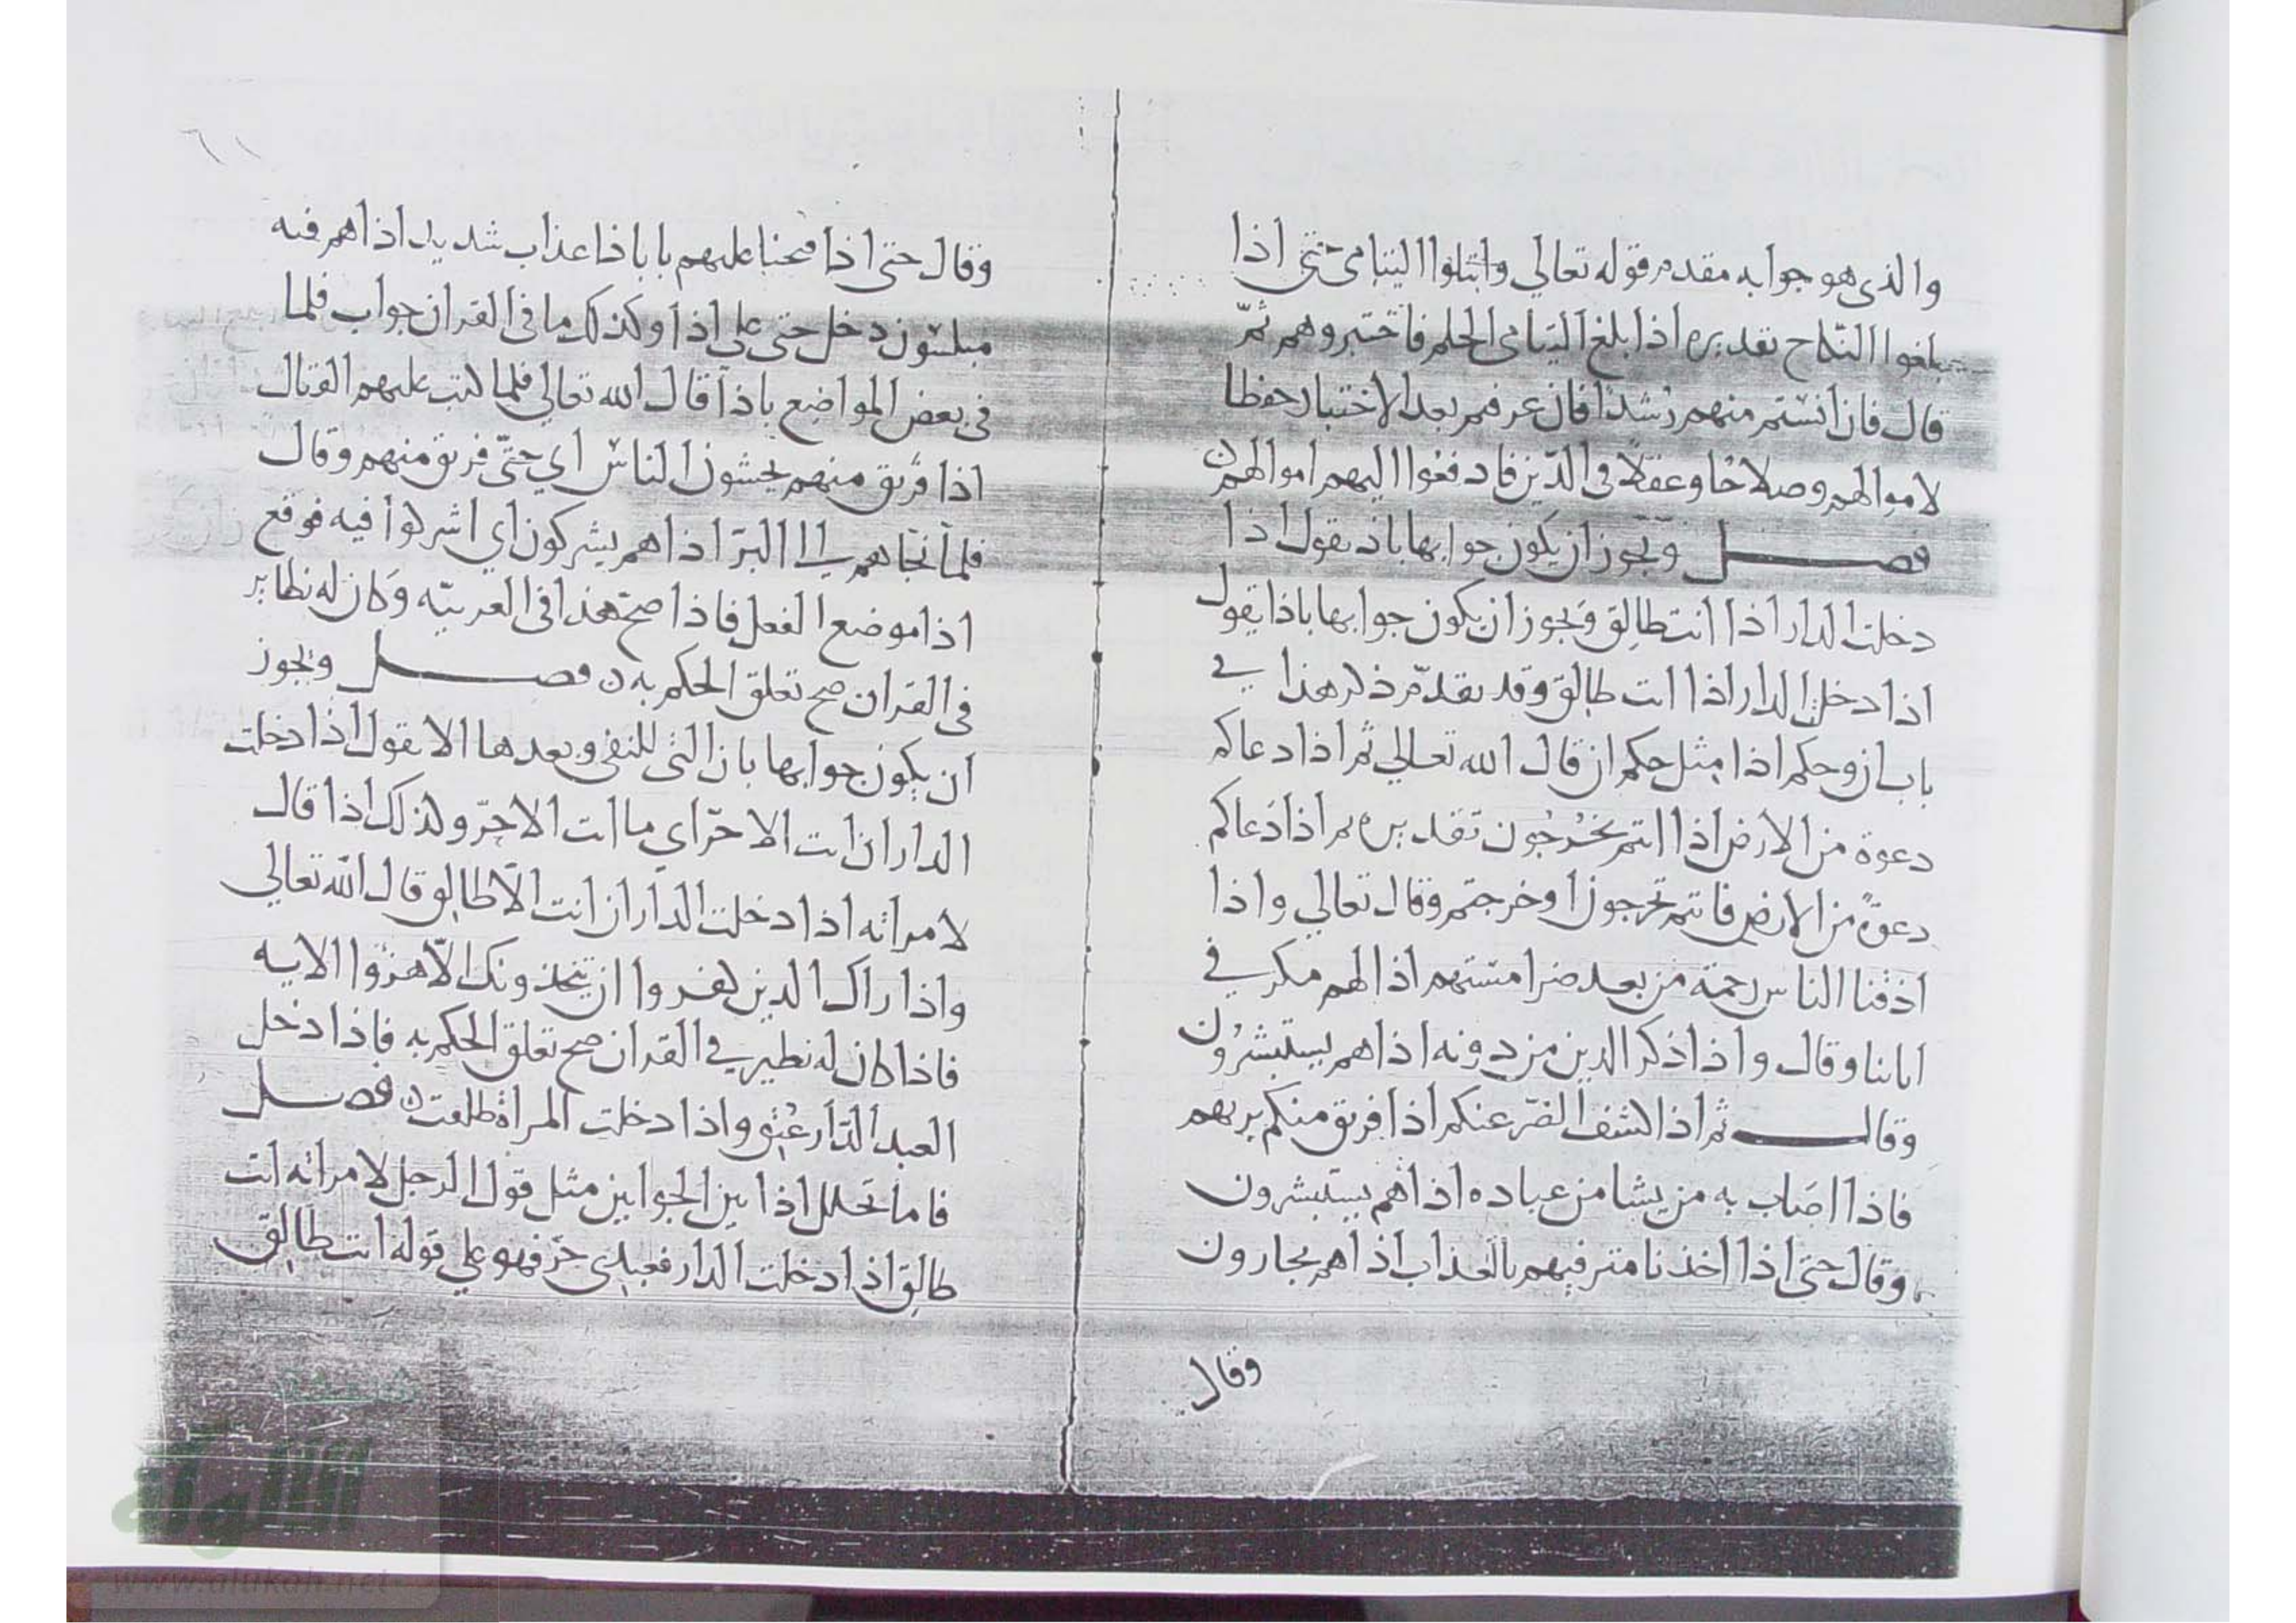 والذي هو جوابه مقدم قوله تعالي وابتلوا اليتامى حتى اذا
بلغوا النكاح تقديره اذا بلغ اليتامى الحلم فاختبروهم ثمّ
قال فان انستم منهم رشدًا فان عرفتم بعد الاختبار حفظا
لاموالهم وصلاحًا وعقلًا في الدّين فادفعوا اليهم اموالهم ن
فصــل ويجوز ان يكون جوابها باذ تقول اذا
دخلت الدار اذا انت طالِق ويجوز ان يكون جوابها باذا تقول
اذا دخلت الدار اذا انت طالِق وقد تقدّم ذكر هذا في
باب ان وحكم اذا مثل حكم ان قال الله تعالي ثم اذا دعاكم
دعوة من الارض اذا انتم تخرُجُون تقديره ثم اذا دَعاكم
دعوةً من الارض فانتم تخرجون او خرجتم وقال تعالي واذا
اذقنا الناس رحمة من بعد ضرا مستهم اذا لهم مكر في
اياتنا وقال واذا ذكر الذين من دونه اذا هم يستبشرُون
وقالــ ثم اذا كشف الضرّ عنكم اذا فريق منكم بربهم
فاذا اصَاب به من يشا من عباده اذا هم يستبشرون
وقال حتى اذا اخذنا مترفيهم بالعذاب اذا هم يجارون
وقال
وقال حتى اذا فتحنا عليهم بابا ذا عذاب شديد اذا هم فيه
مبلسون دخل حتى على اذا وكذلك ما في القران جواب فلما
في بعض المواضع باذا قال الله تعالي فلما كتب عليهم القتال
اذا فريق منهم يخشون الناس اي حتّى فريق منهم وقال
فلما نجّاهم الى البرّ اذا هم يشركون اي اشركوا فيه فوقع
اذا موضع الفعل فاذا صحّ هذا في العربيّه وكان له نظاير
في القران صح تعلق الحكم به ن فصــل ويجوز
ان يكون جوابها بان التى للنفي وبعدها الا تقول اذا دخلت
الدار ان انت الا حرّ اي ما انت الا حرّ وكذلك اذا قال
لامراته اذا دخلت الدار ان انت الّا طالِق قال الله تعالي
واذا راك الذين كفروا ان يتخذونك الّا هزوًا الايه
فاذا كان له نظير في القران صح تعلق الحكم به فاذا دخل
العبد الدّار عُتِق واذا دخلت المراة طلقت ن فصــل
فاما تخلل اذا بين الجوابين مثل قول الرجل لامراته انت
طالِق اذا دخلت الدار فعبدى حرّ فهو علي قوله انت طالِق
الألوكة
www.alukah.net